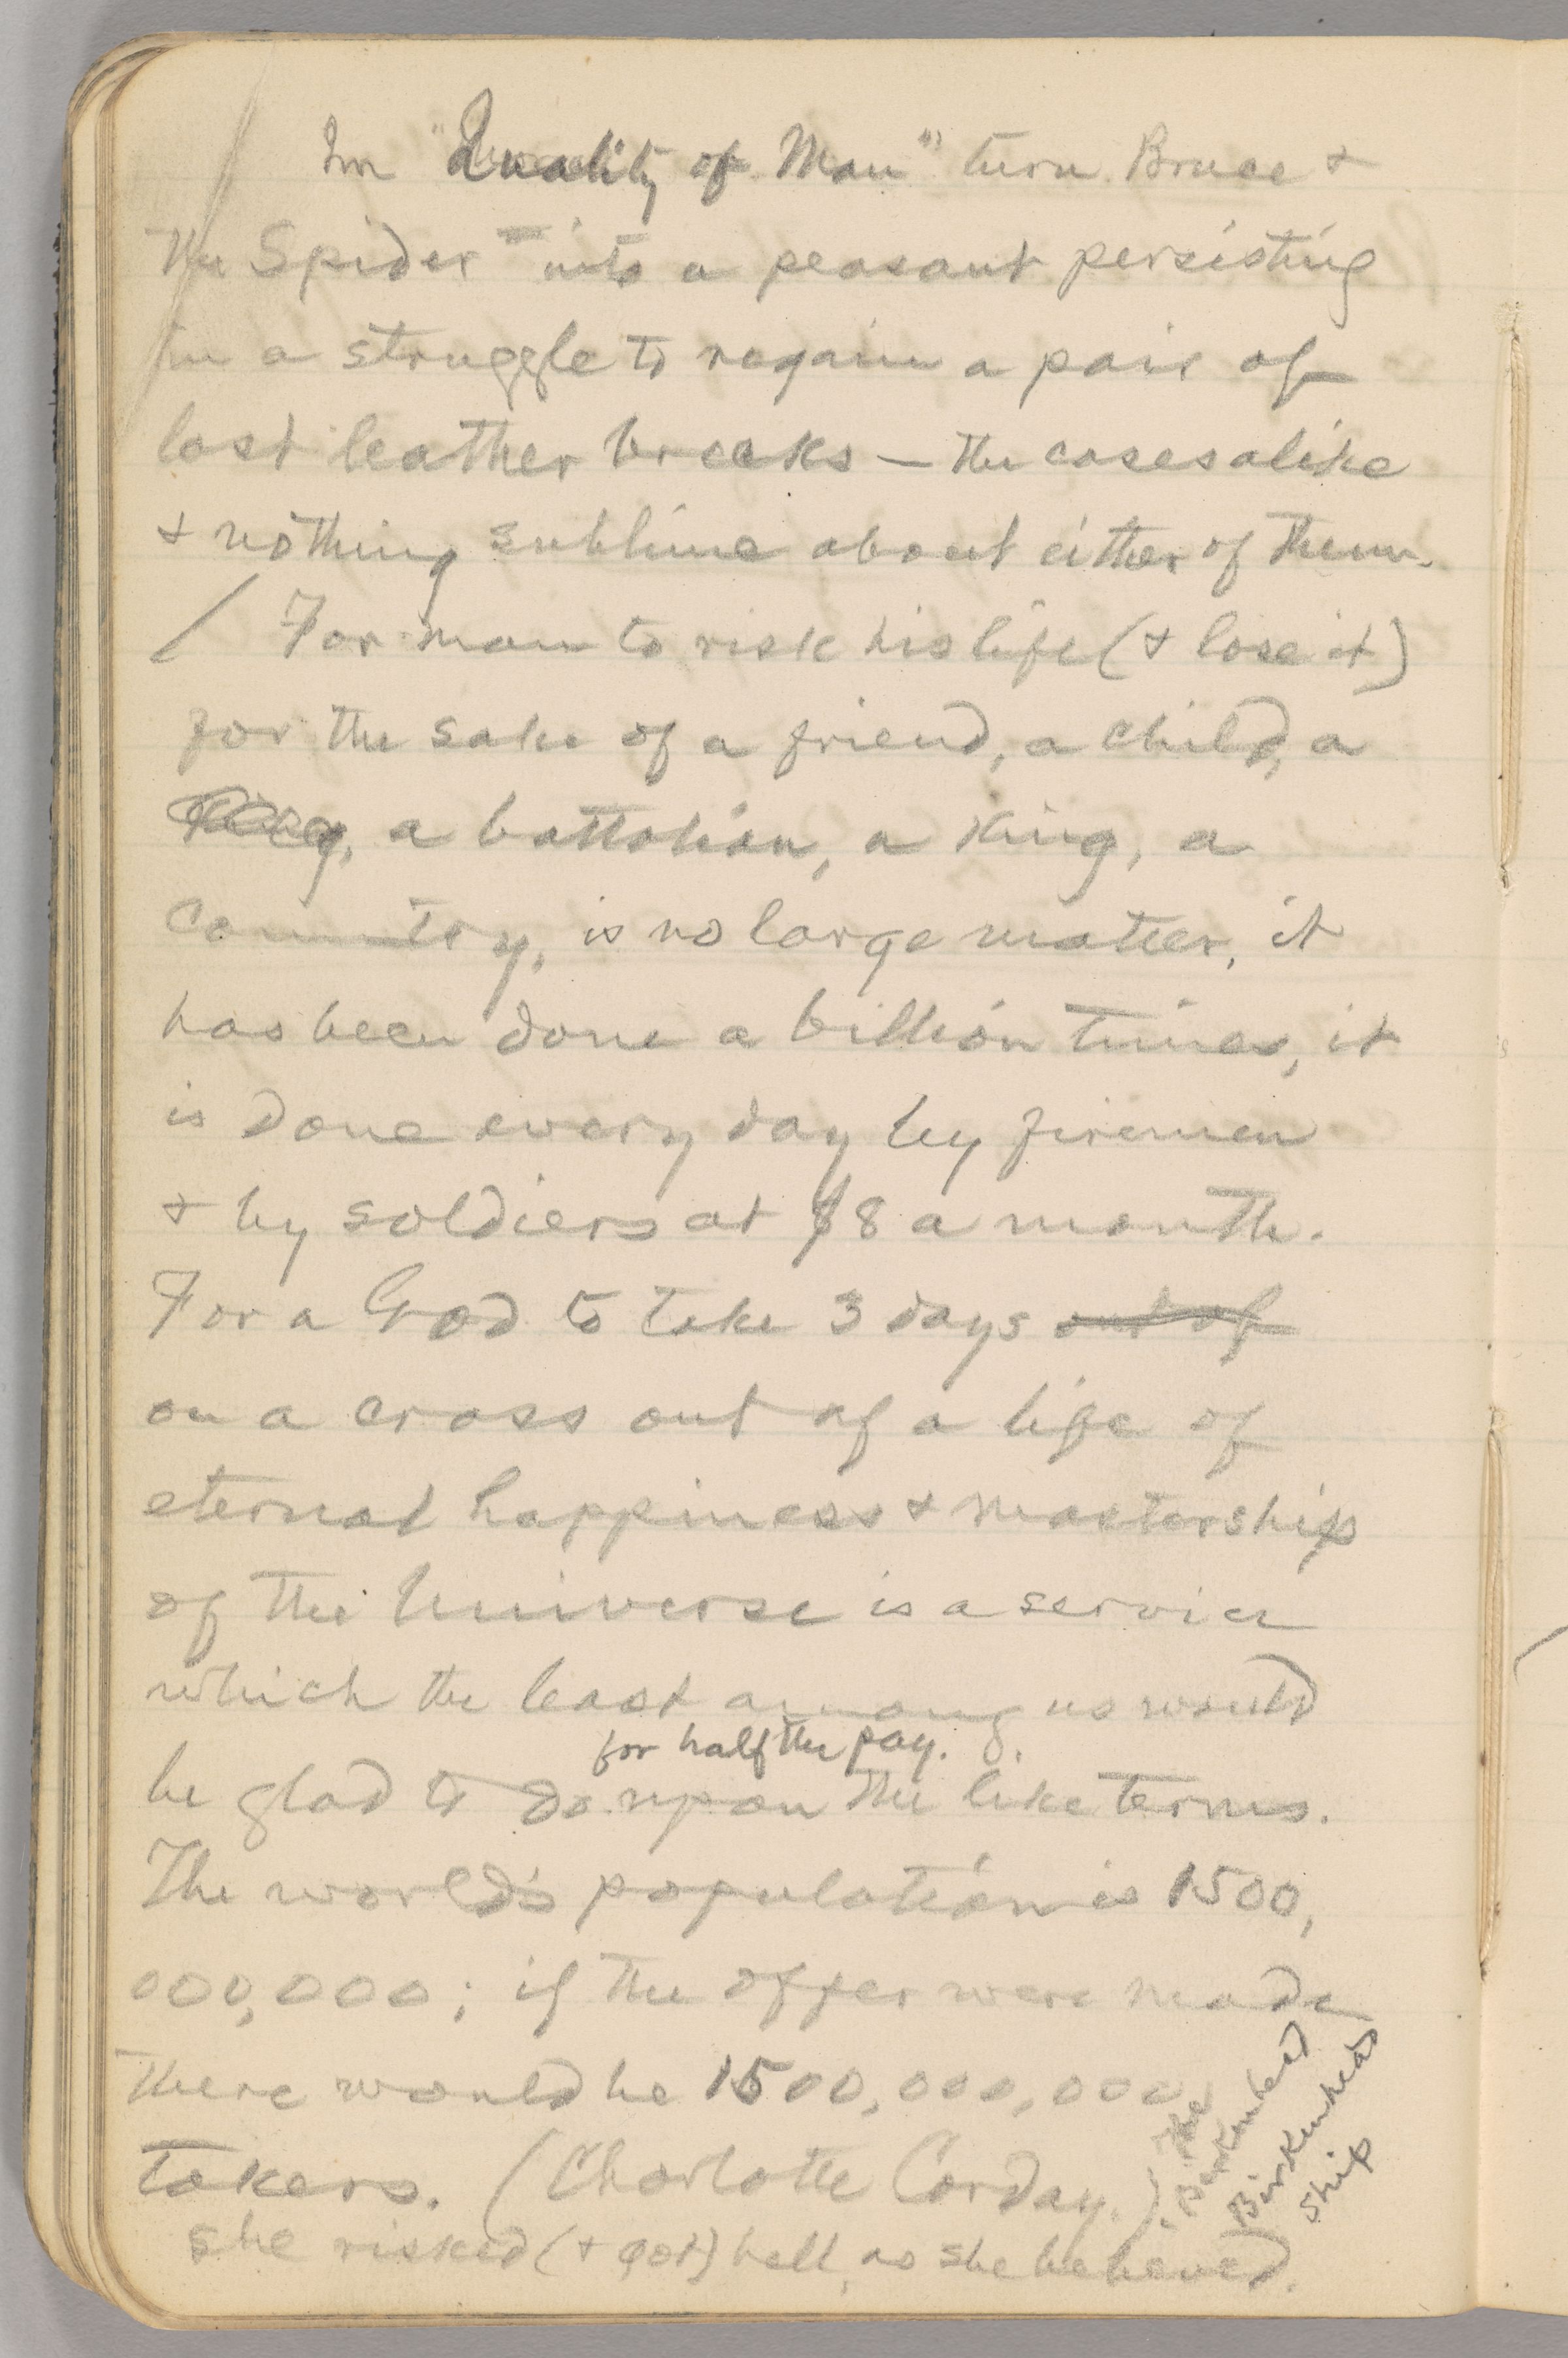 In "Quality of Man" turn Bruce &
the Spider into a peasant persisting
in a struggle to regain a pair of
lost leather breeks — the cases alike
& nothing sublime about either of them.
/ For man to risk his life (& lose it)
for the sake of a friend, a child, a
a battalion, a king, a
country, is no large matter, it
has been done a billion times, it
is done every day by firemen
& by soldiers at $8 a month.
For a God to take 3 days out of
on a cross out of a life of
eternal happiness & mastership
of the Universe is a service
which the least among us would
for half the pay.
be glad to do upon the like terms.
The world's population is 1500,
000,000; if the offer were made
there would be 1500,000,000
takers. (Charlotte Corday.)
The
Birkenhead
Birkenhead
ship
she risked (& got) hell, as she believed.